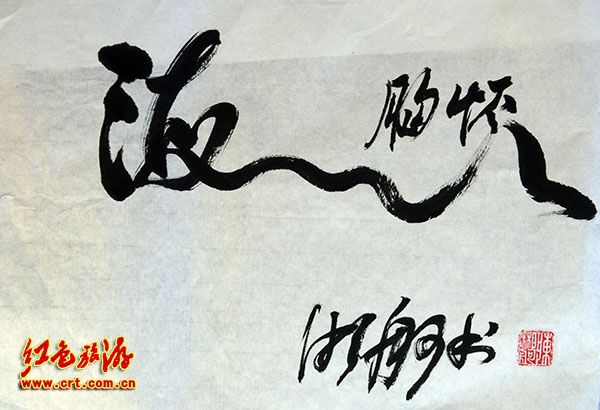 海 胸怀
湘舸书
红色旅游
www.crt.com.cn